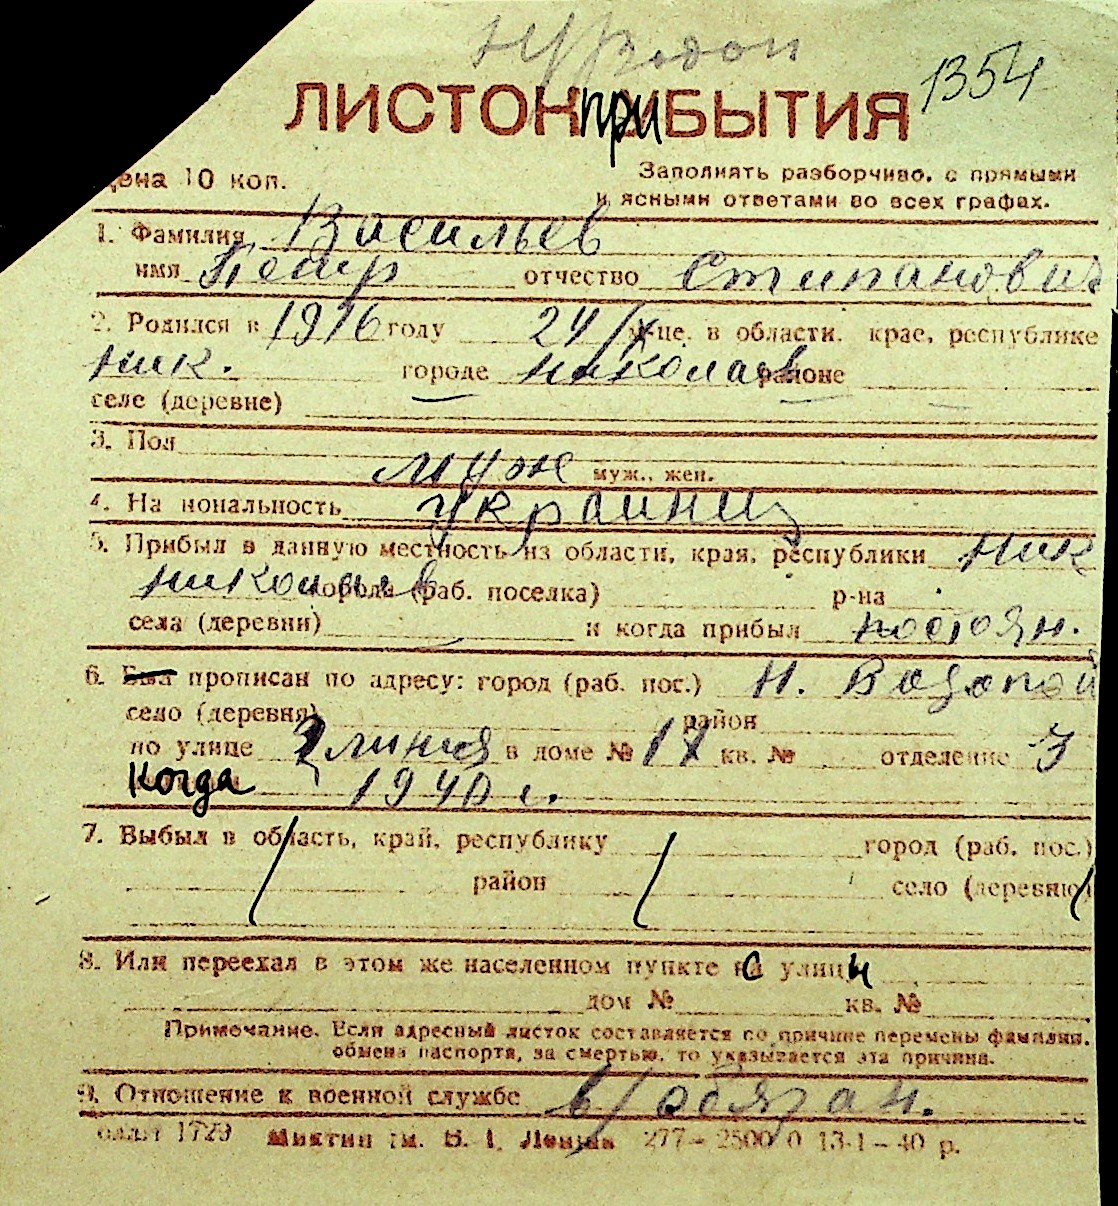 1354
ЛИСТОК ПРИБЫТИЯ
Цена 10 коп.
Заполнять разборчиво, с прямыми
и ясными ответами во всех графах.
1. Фамилия Васильев
имя Петр отчество Стипанович
2. Родился в 1916 году 24/X м-це, в области, крае, республике
Ник. городе Николаев районе
селе (деревне)
3. Пол
муж муж., жен.
4. Национальность украинец
5. Прибыл в данную местность из области, края, республики Ник
Николаев города (раб. поселка) р-на
села (деревни) и когда прибыл постоян.
6. прописан по адресу: город (раб. пос.) Н. Водопой
село (деревня) район
по улице 2 линия в доме № 17 кв. № отделение 3
Когда 1940 г.
7. Выбыл в область, край, республику город (раб. пос.)
район село (деревню)
8. Или переехал в этом же населенном пункте с улицы
дом № кв. №
Примечание. Если адресный листок составляется по причине перемены фамилии,
обмена паспорта, за смертью, то указывается эта причина.
9. Отношение к военной службе в/обязан.
1729 им. В. І. Леніна 277–2500 0 13-1–40 р.